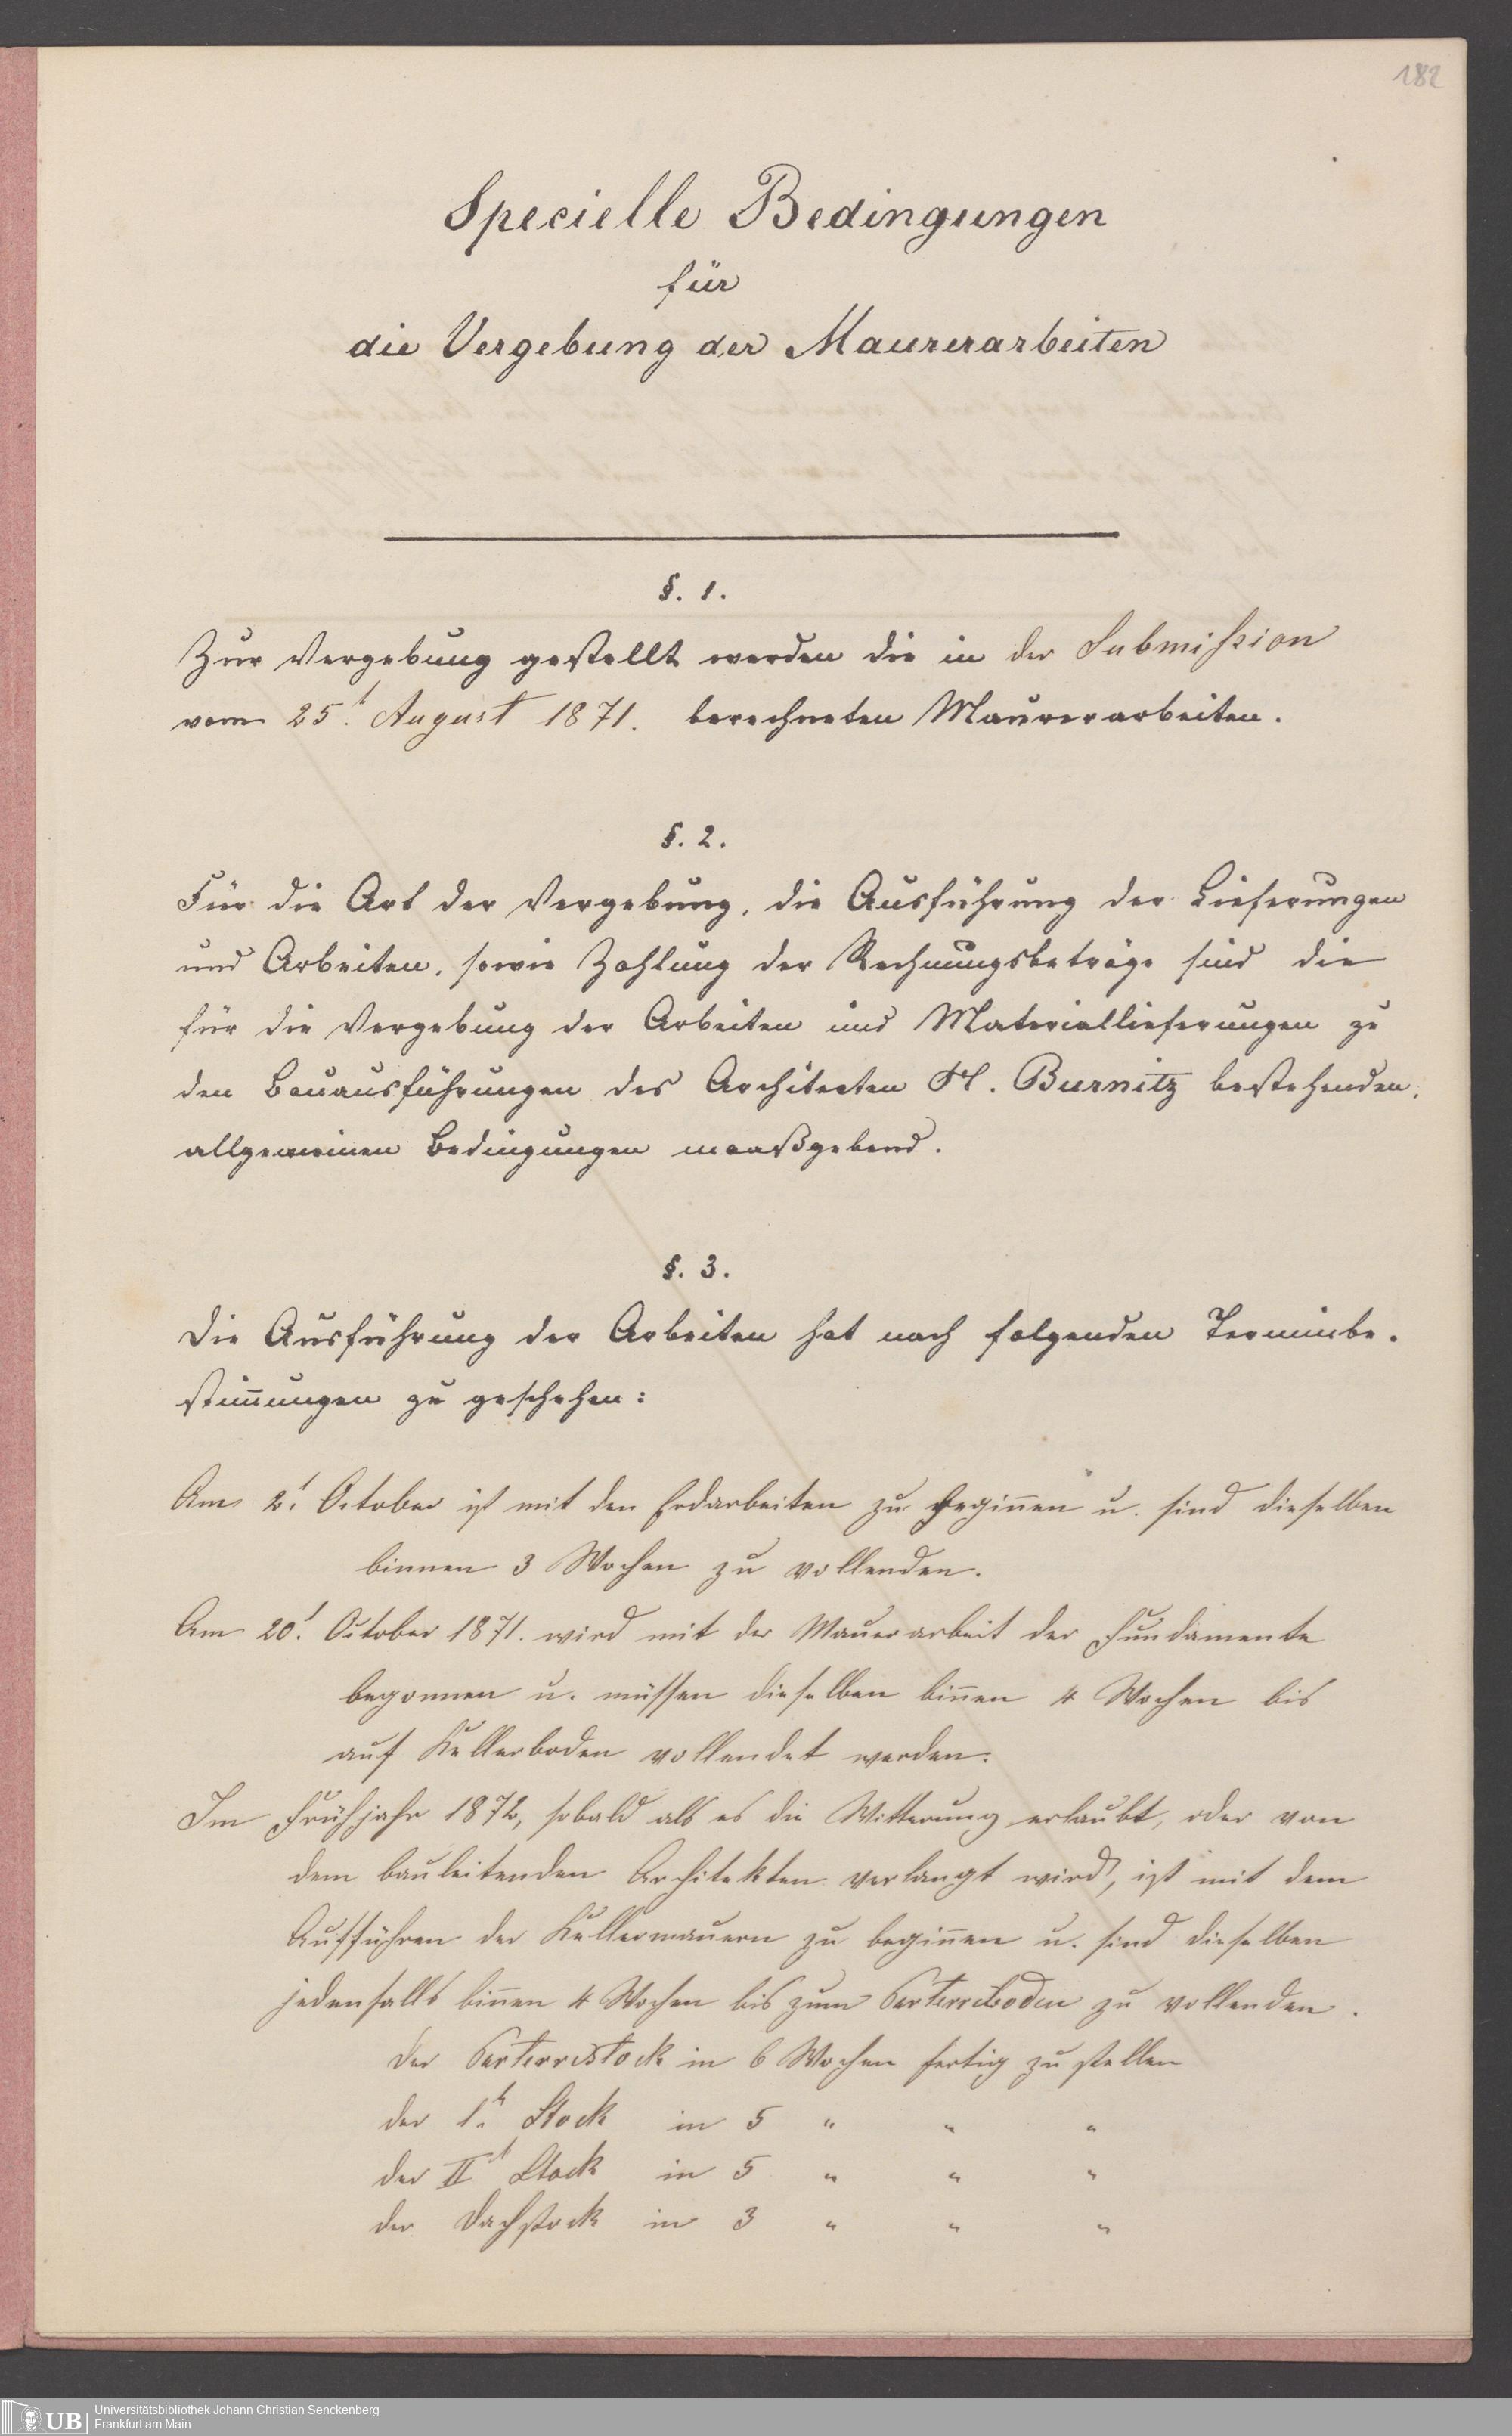 182
Specielle Bedingungen
für
die Vergebung der Maurerarbeiten
§. 1.
Zur Vergebung gestellt werden die in der Submission
vom 25t. August 1871. berechneten Maurerarbeiten.
§. 2.
Für die Art der Vergebung, die Ausführung der Lieferungen
und Arbeiten, sowie Zahlung der Rechnungsbeträge sind die
für die Vergebung der Arbeiten und Materiallieferungen zu
den Bauausführungen des Architecten H. Burnitz bestehenden,
allgemeinen Bedingungen maaßgebend.
§. 3.
Die Ausführung der Arbeiten hat nach folgenden Terminbe-
stim̅ungen zu geschehen:
Am 2t. October ist mit den Erdarbeiten zu begin̅en u. sind dieselben
binnen 3 Wochen zu vollenden.
Am 20t. October 1871. wird mit der Mauerarbeit der Fundamente
begonnen u. müssen dieselben bin̅en 4 Wochen bis
auf Kellerboden vollendet werden.
Im Frühjahr 1872, sobald als es die Witterung erlaubt, oder von
dem bauleitenden Architekten verlangt wird, ist mit dem
Aufführen der Kellermauern zu begin̅en u. sind dieselben
jedenfalls bin̅en 4 Wochen bis zum Parterreboden zu vollenden.
Der Parterrestock in 6 Wochen fertig zu stellen
der 1t. Stock in 5 " " "
der IIt Stock in 5 " " "
der Dachstock in 3 " " "
UB
Universitätsbibliothek Johann Christian Senckenberg
Frankfurt am Main